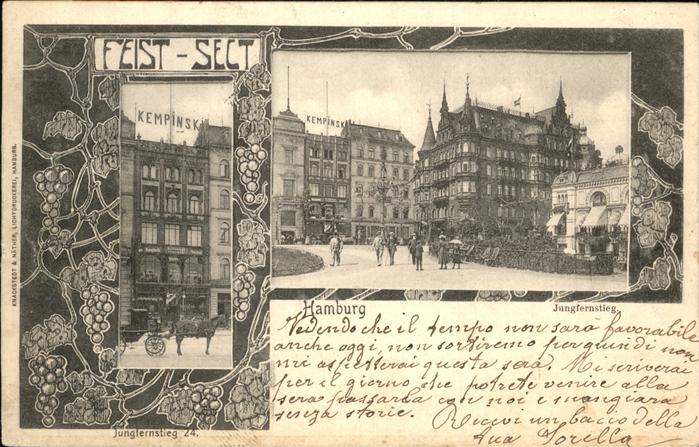 FEIST - SECT
KEMPINSKI
KEMPINSKI
KNACKSTEDT & NÄTHER, LICHTDRUCKEREI, HAMBURG.
Hamburg
Jungfernstieg.
Vedendo che il tempo non sarà favorabile
anche oggi, non sortiremo per quindi non
mi aspetterai questa sera. Mi scriverai
per il giorno che potrete venire alla
sera passarla con noi e mangiara
senza storie.
Ricevi un bacio della
tua Sorella
Jungfernstieg 24.